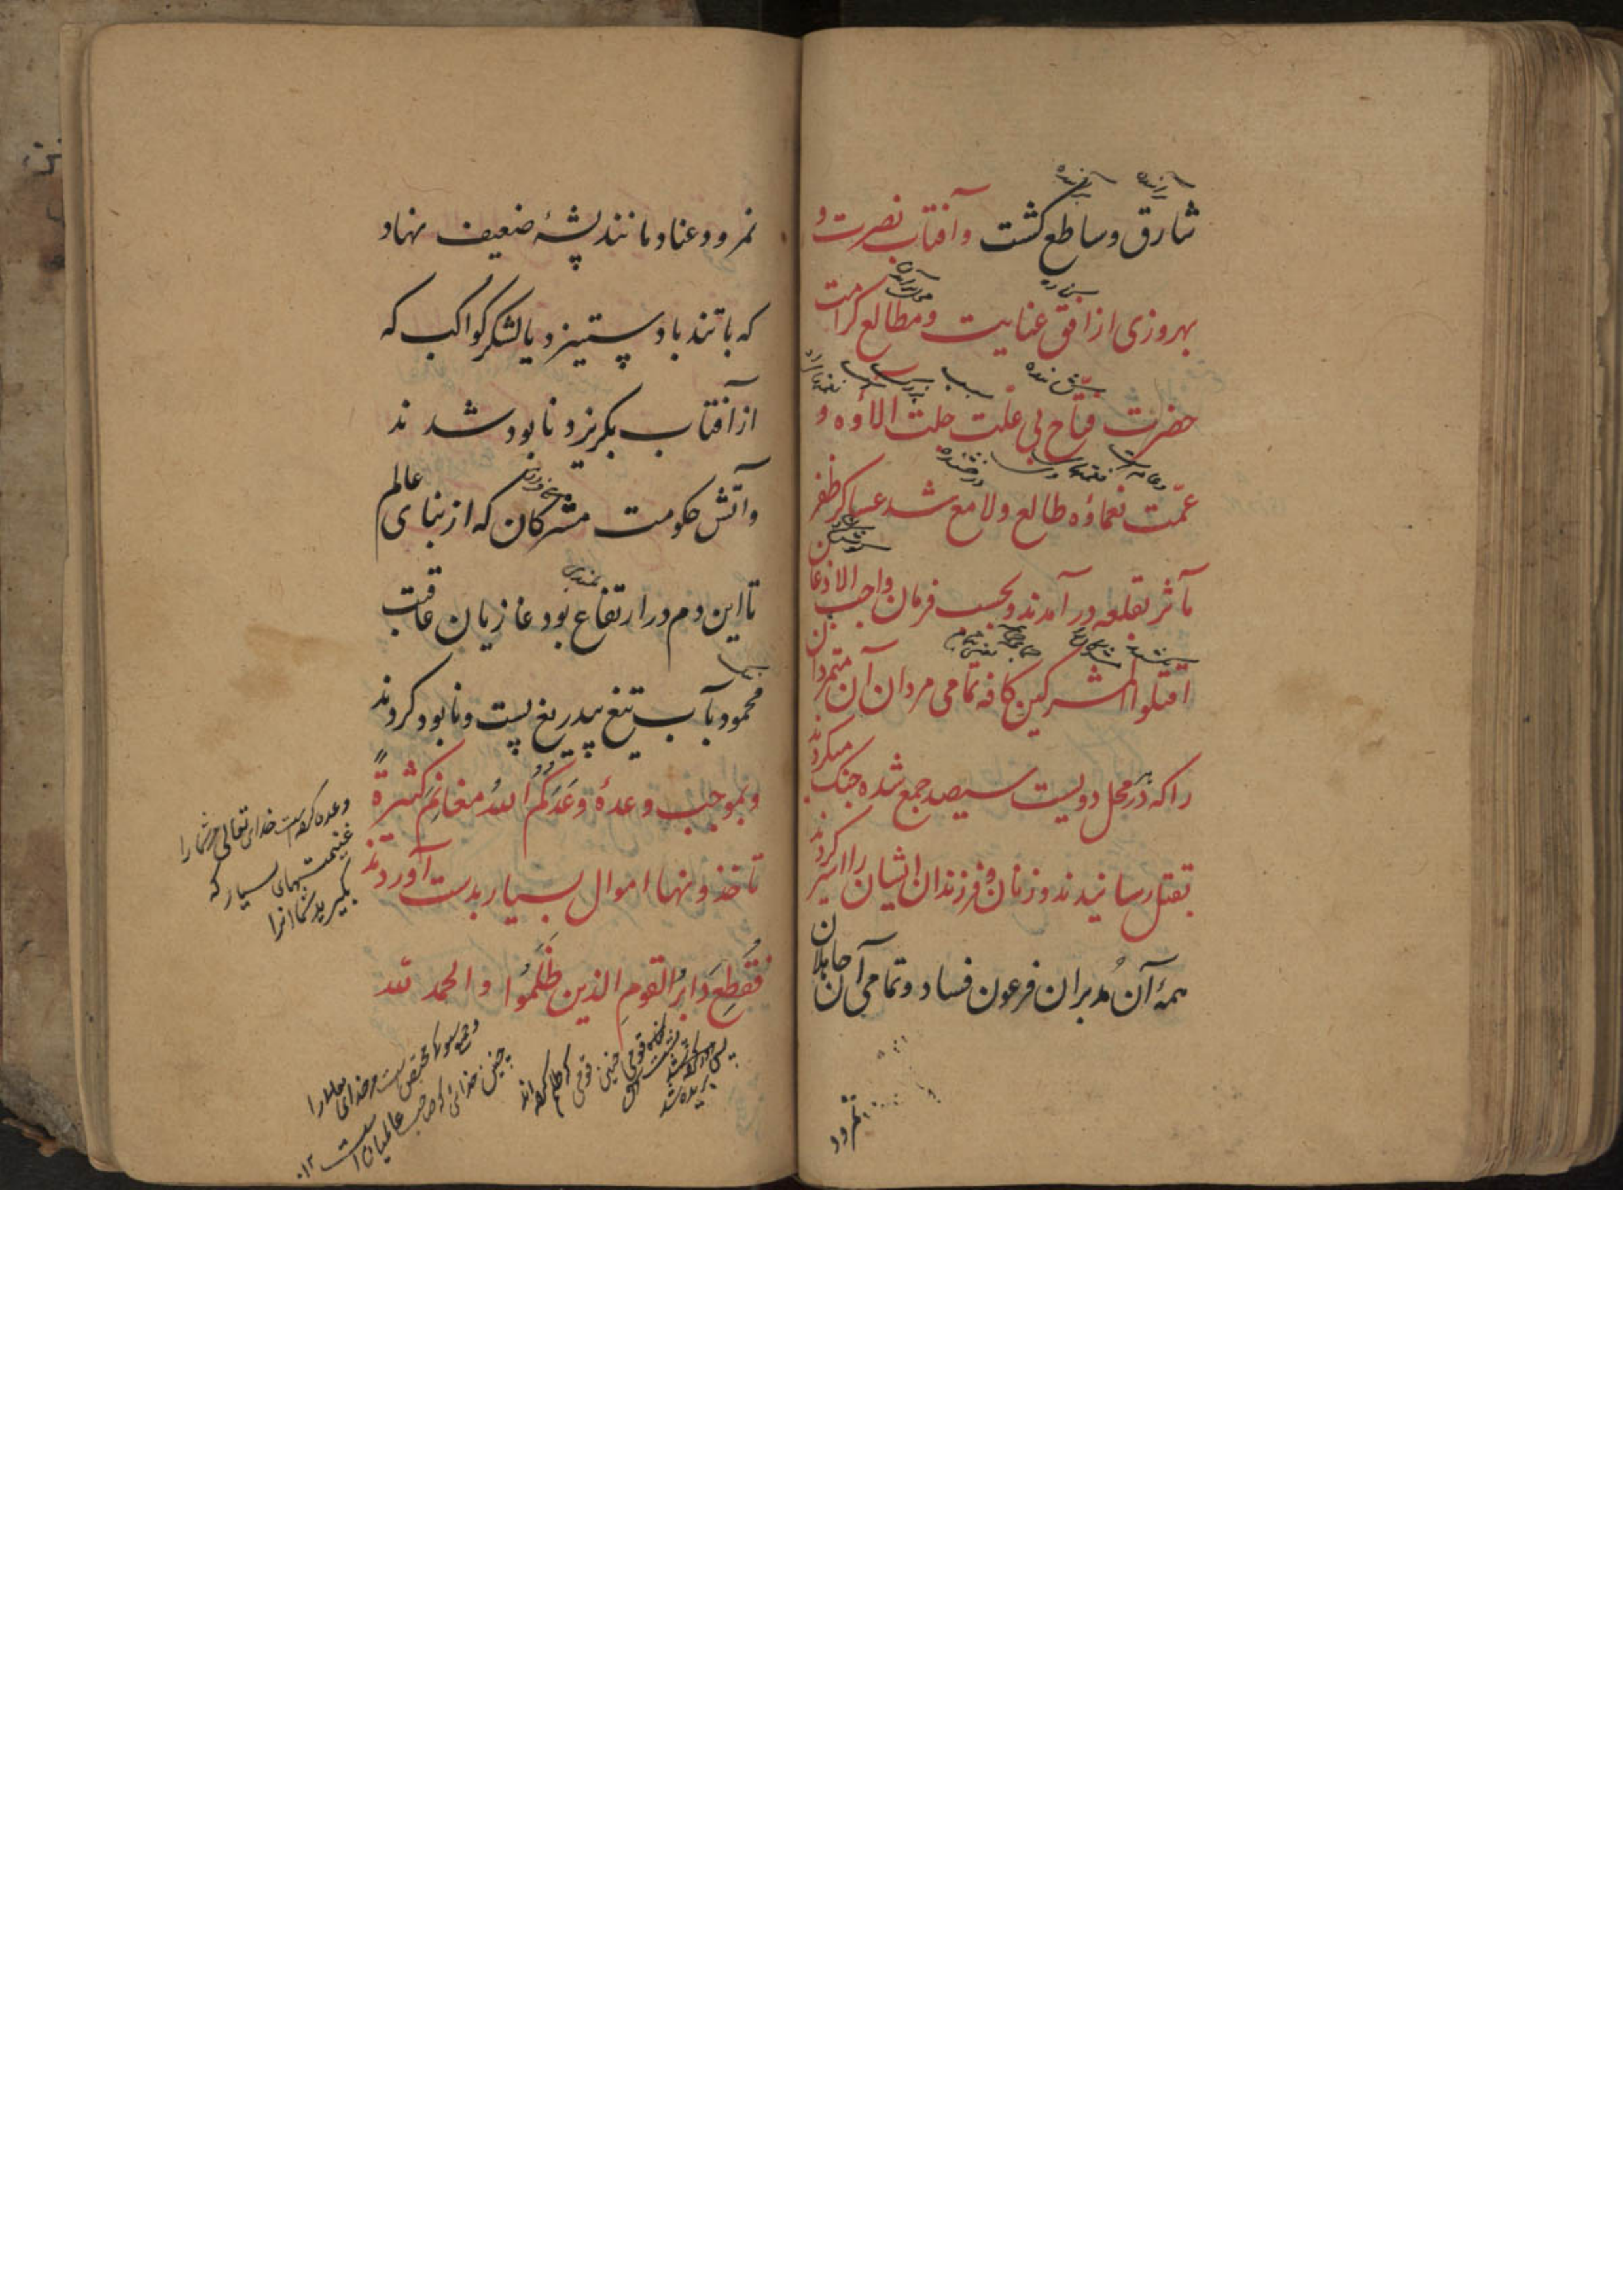 شارق وساطع کشت وآفتاب نصرت و
بهروزی از افق عنایت ومطالع کرامت
حضرت فتاح بی علّت جلت الاؤه و
عمّت نعماؤه طالع ولامع شد عساکر ظفر
مآثر بقلعه در آمدند وبحسب فرمان واجب الاذعان
اقتلوا المشرکین کافه تمامی مردان آن متمردان
را که در محل دویست سیصد جمع شده جنک میکردند
بقتل رسانیدند وزنان و فرزندان ایشان را اسیر کردند
همهٔ آن مُدبران فرعون فساد وتمامی آن جاهلان
نمرود
نمرود عناد مانند پشهٔ ضعیف نهاد
که با تند باد ستیزد یا لشکر کواکب که
از آفتاب بکریزد نابود شدند
وآتش حکومت مشرکان که از بنای عالم
تا این دم در ارتفاع بود غازیان عاقبت
محمود بآب تیغ بیدریغ پست ونابود کردند
وبموجب وعدهٔ وَعَدَکُمُ اللهُ مغانِمَ کَثیرةً
تاخذونها اموال بسیار بدست آوردند
فَقُطِعَ دَابِرُ القومِ الذین ظَلَمُوا والحمد لله
وعده کرده است خدای تعالی مر شما را
غنیمتهای بسیار که
بکیرید شما آنرا